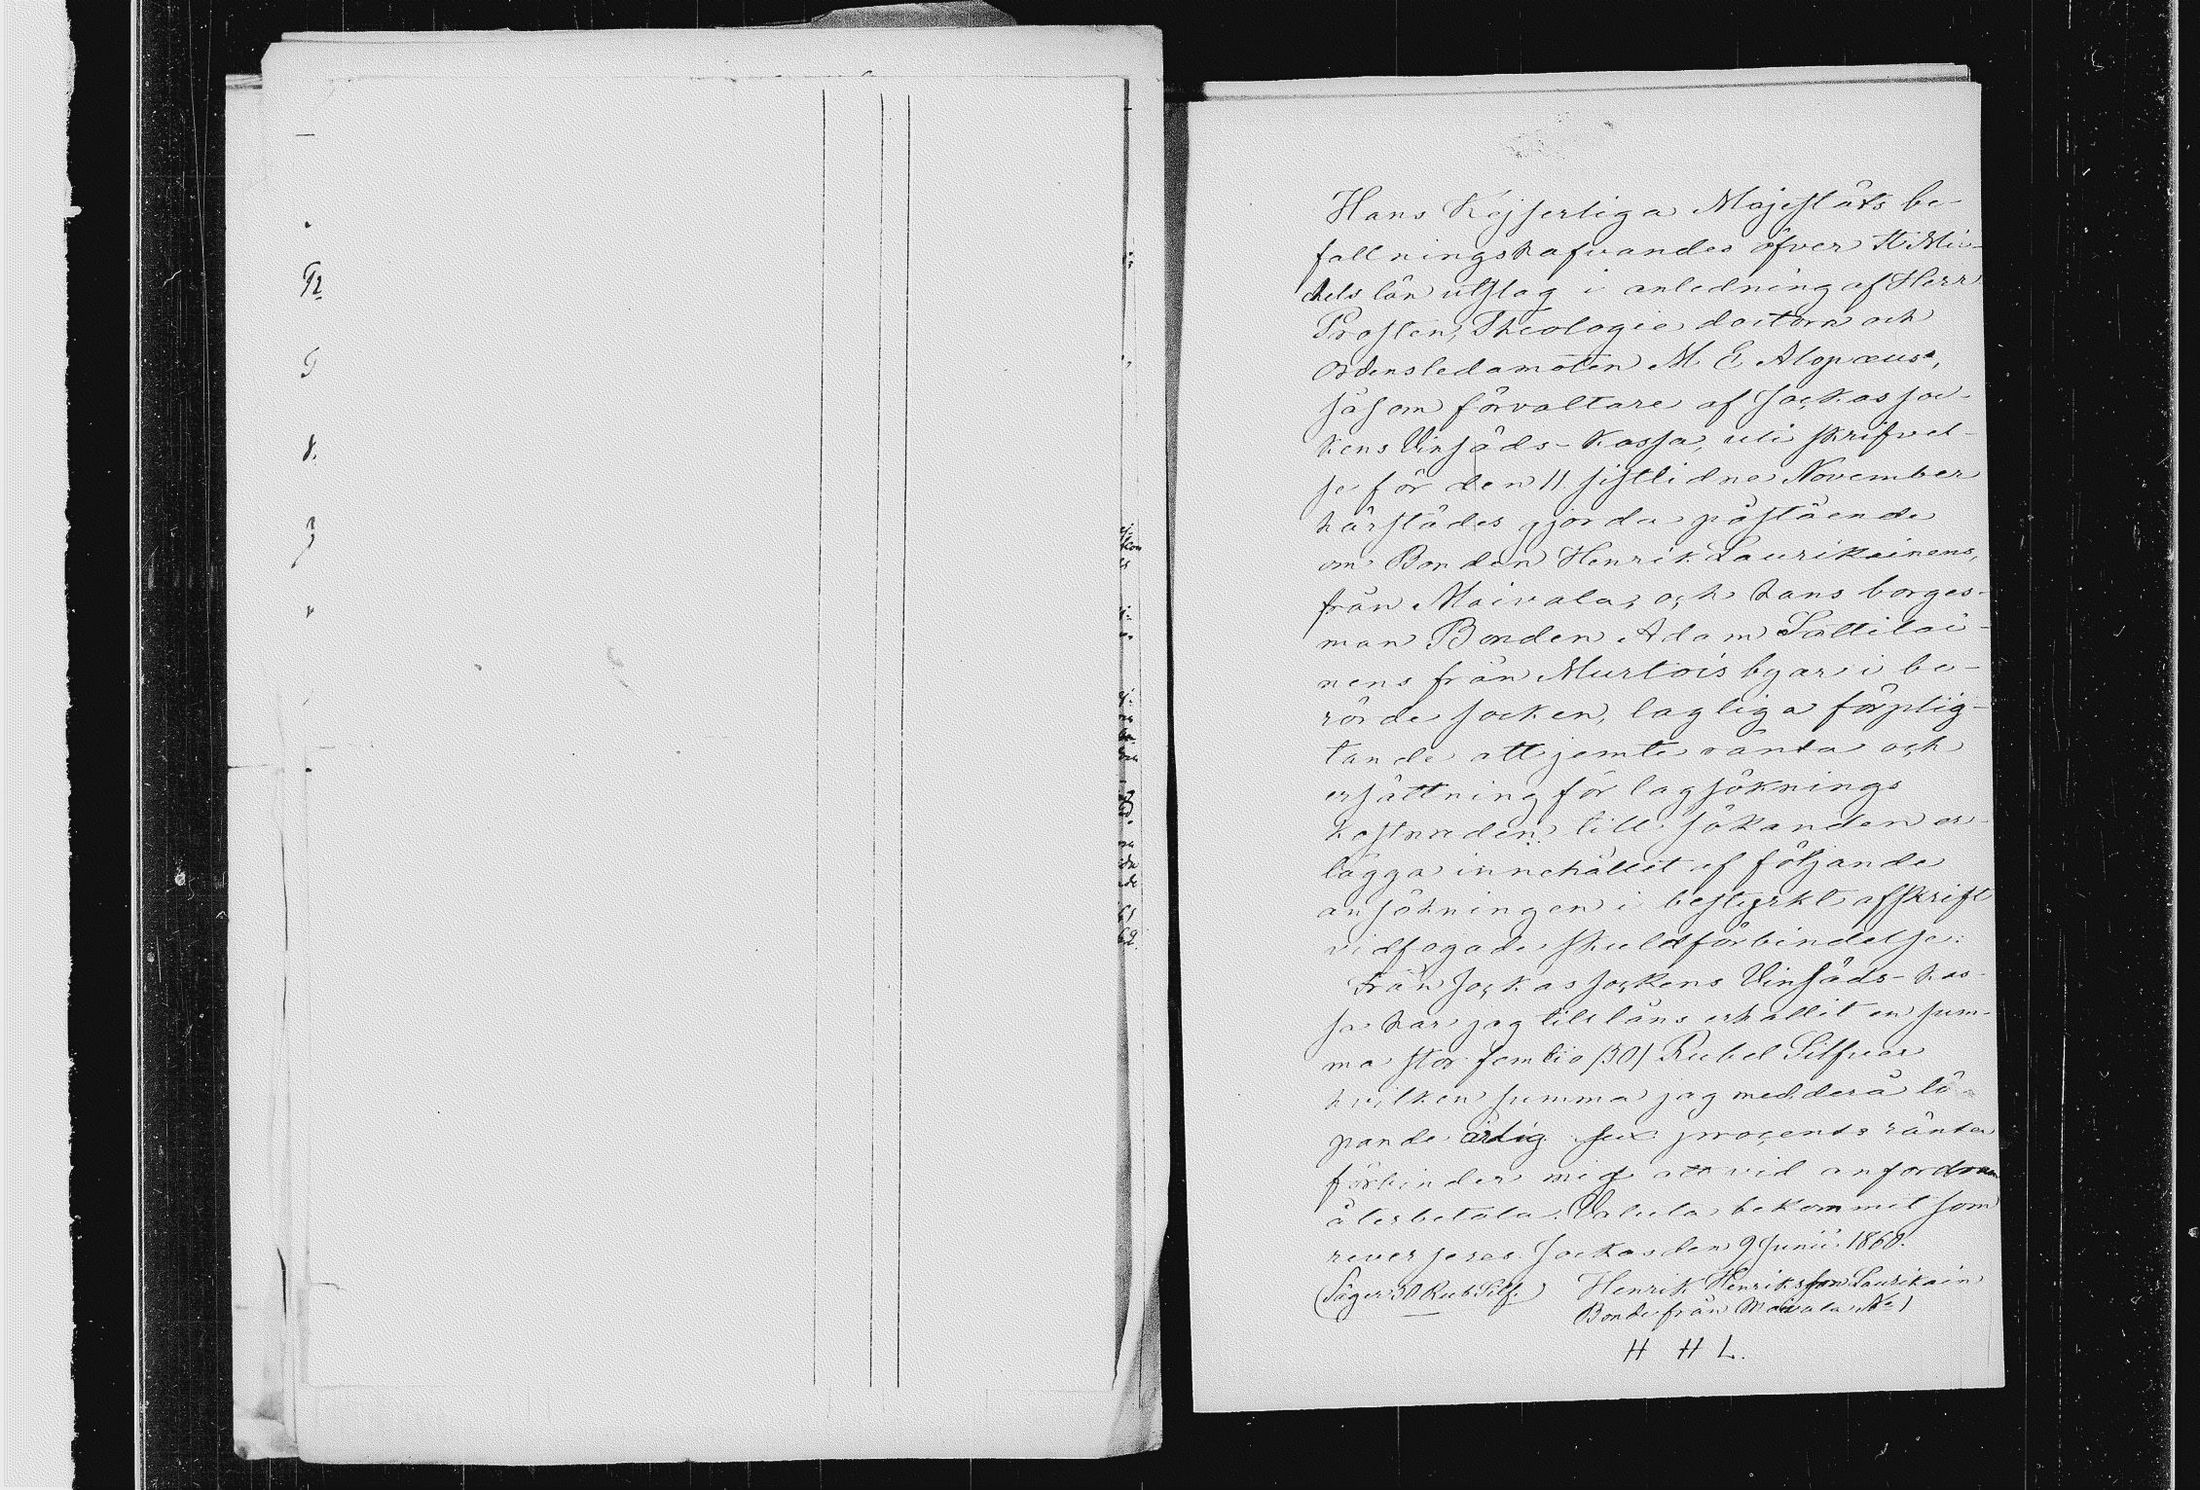 Hans Kejserliga Majestäts be-
fallningshafvandes öfver St Mi-
chels län utslag i anledning af Herr
Prosten, Theologie doctorn och
Ordensledamoten M E Alopæus,
såsom förvaltare af Jockas soc-
kens Vinsäds-kassa, uti skrifvel-
se för den 11 sistlidne November
härstädes gjorda påstående
om Bonden Henrik Laurikainens,
från Maivala, och hans borges-
man Bonden Adam
nens från Murtois byar i be-
rörde socken, lagliga förplig-
tande att jemte ränta och
ersättning för lagsöknings
kostnaden till sökanden er-
lägga innehållet af följande
ansökningen i bestyrkt afskrift
vidfogade skuldförbindelse:
Från Jockas sockens Vinsäds-kas-
sa har jag till låns erhållit en sum-
ma stor femtio /50/ Rubel Silfver
hvilken summa jag med derå lö-
pande årlig sex procents ränta
förbinder mig att vid anfordran
återbetala. Valuta bekommit som
reverseras. Jockas den 9 Junii 1860.
(Säger 50 Rub Silf.) Henrik Henriksson Laurikain
Bonde från Maivala No 1
H H L.